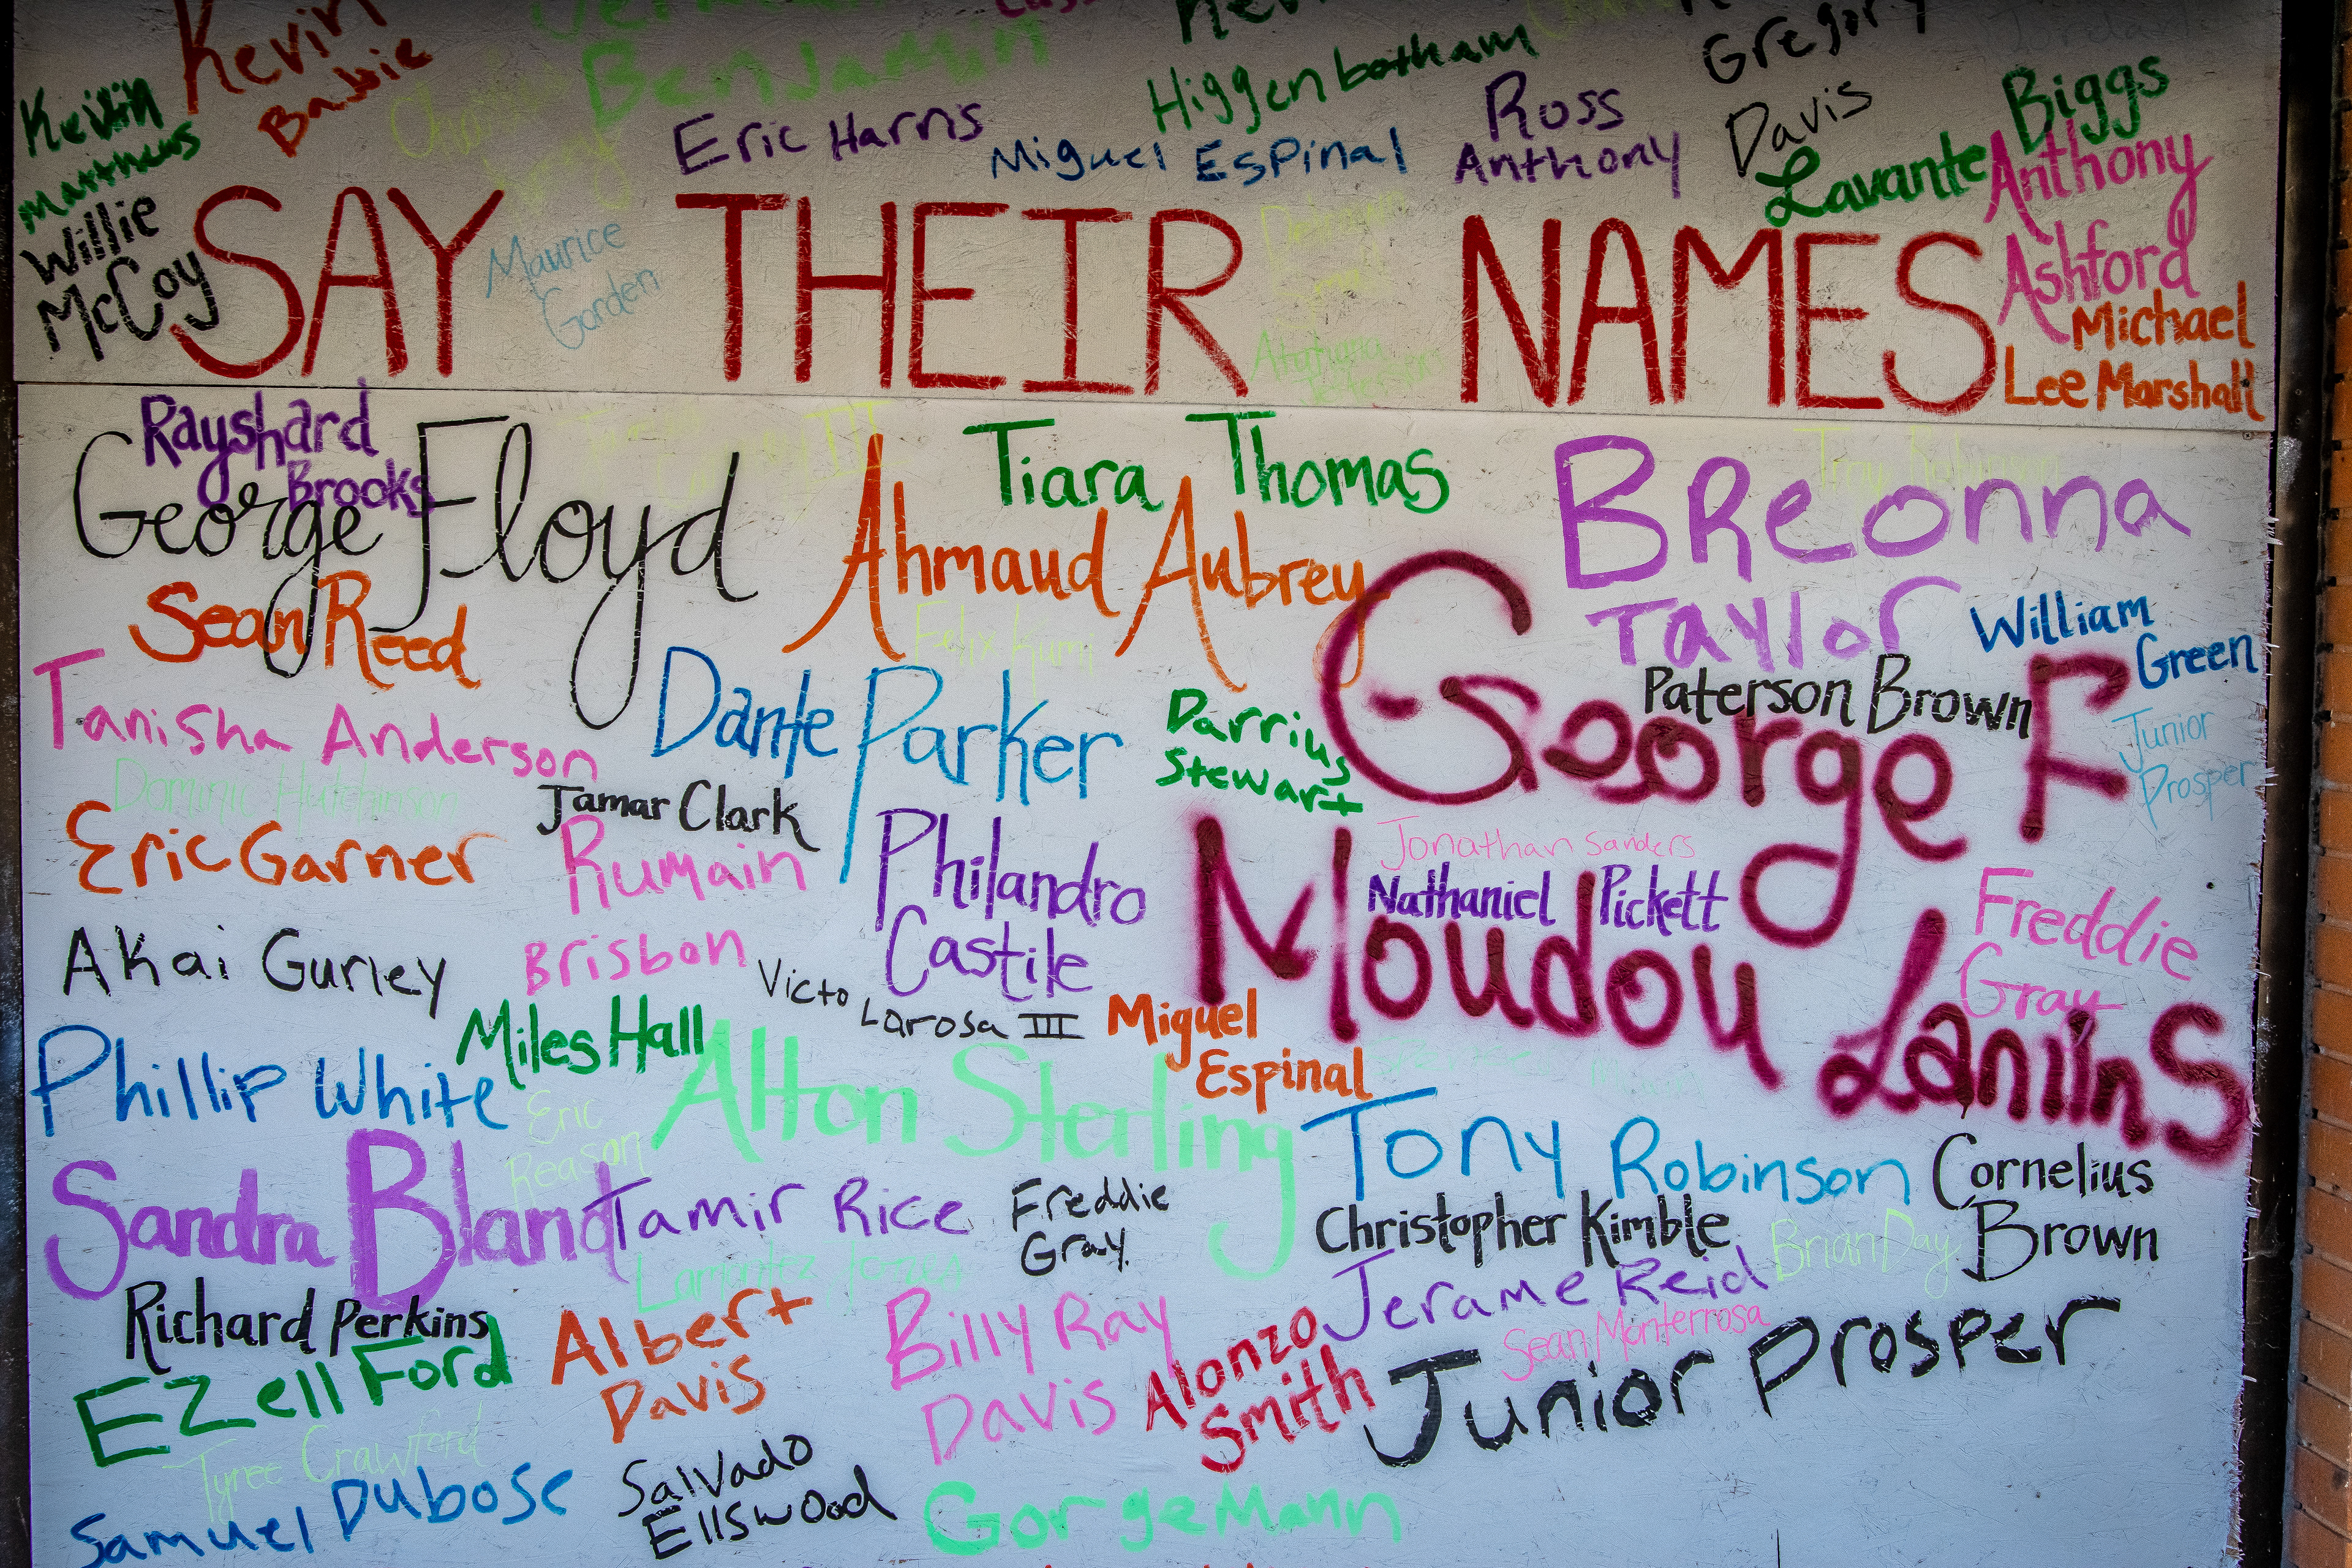 Kevin
Benjamin
Gregory
Kevin
Matthews
Babie
Eric Harris
Higgenbotham
Miguel Espinal
Ross
Anthony
Davis
Biggs
Lavante
Anthony
Ashford
Willie
McCoy
SAY THEIR NAMES
Maurice
Gorden
Michael
Lee Marshall
Rayshard
Brooks
George Floyd
Tiara Thomas
Ahmaud Aubrey
Breonna
Taylor
Troy Robinson
Sean Reed
Felix Kumi
William
Green
Paterson Brown
Tanisha Anderson
Dante Parker
Darrius
Stewart
George F
Junior
Prosper
Dominic Hutchinson
Jamar Clark
Eric Garner
Rumain
Brisbon
Philandro
Castile
Jonathan Sanders
Nathaniel Pickett
Moudou Lanins
Freddie
Gray
Akai Gurley
Victo
Larosa III
Miles Hall
Miguel
Espinal
Phillip White
Eric
Reason
Alton Sterling
Tony Robinson
Cornelius
Brown
Sandra Bland
Tamir Rice
Freddie
Gray.
Christopher Kimble
Brian Day
Lamontez Jones
Jerame Reid
Richard Perkins
Albert
Davis
Billy Ray
Davis
Alonzo
Smith
Sean Monterrosa
Junior Prosper
EZell Ford
Tyree Crawford
Samuel Dubose
Salvado
Ellswood
Gorge Mann